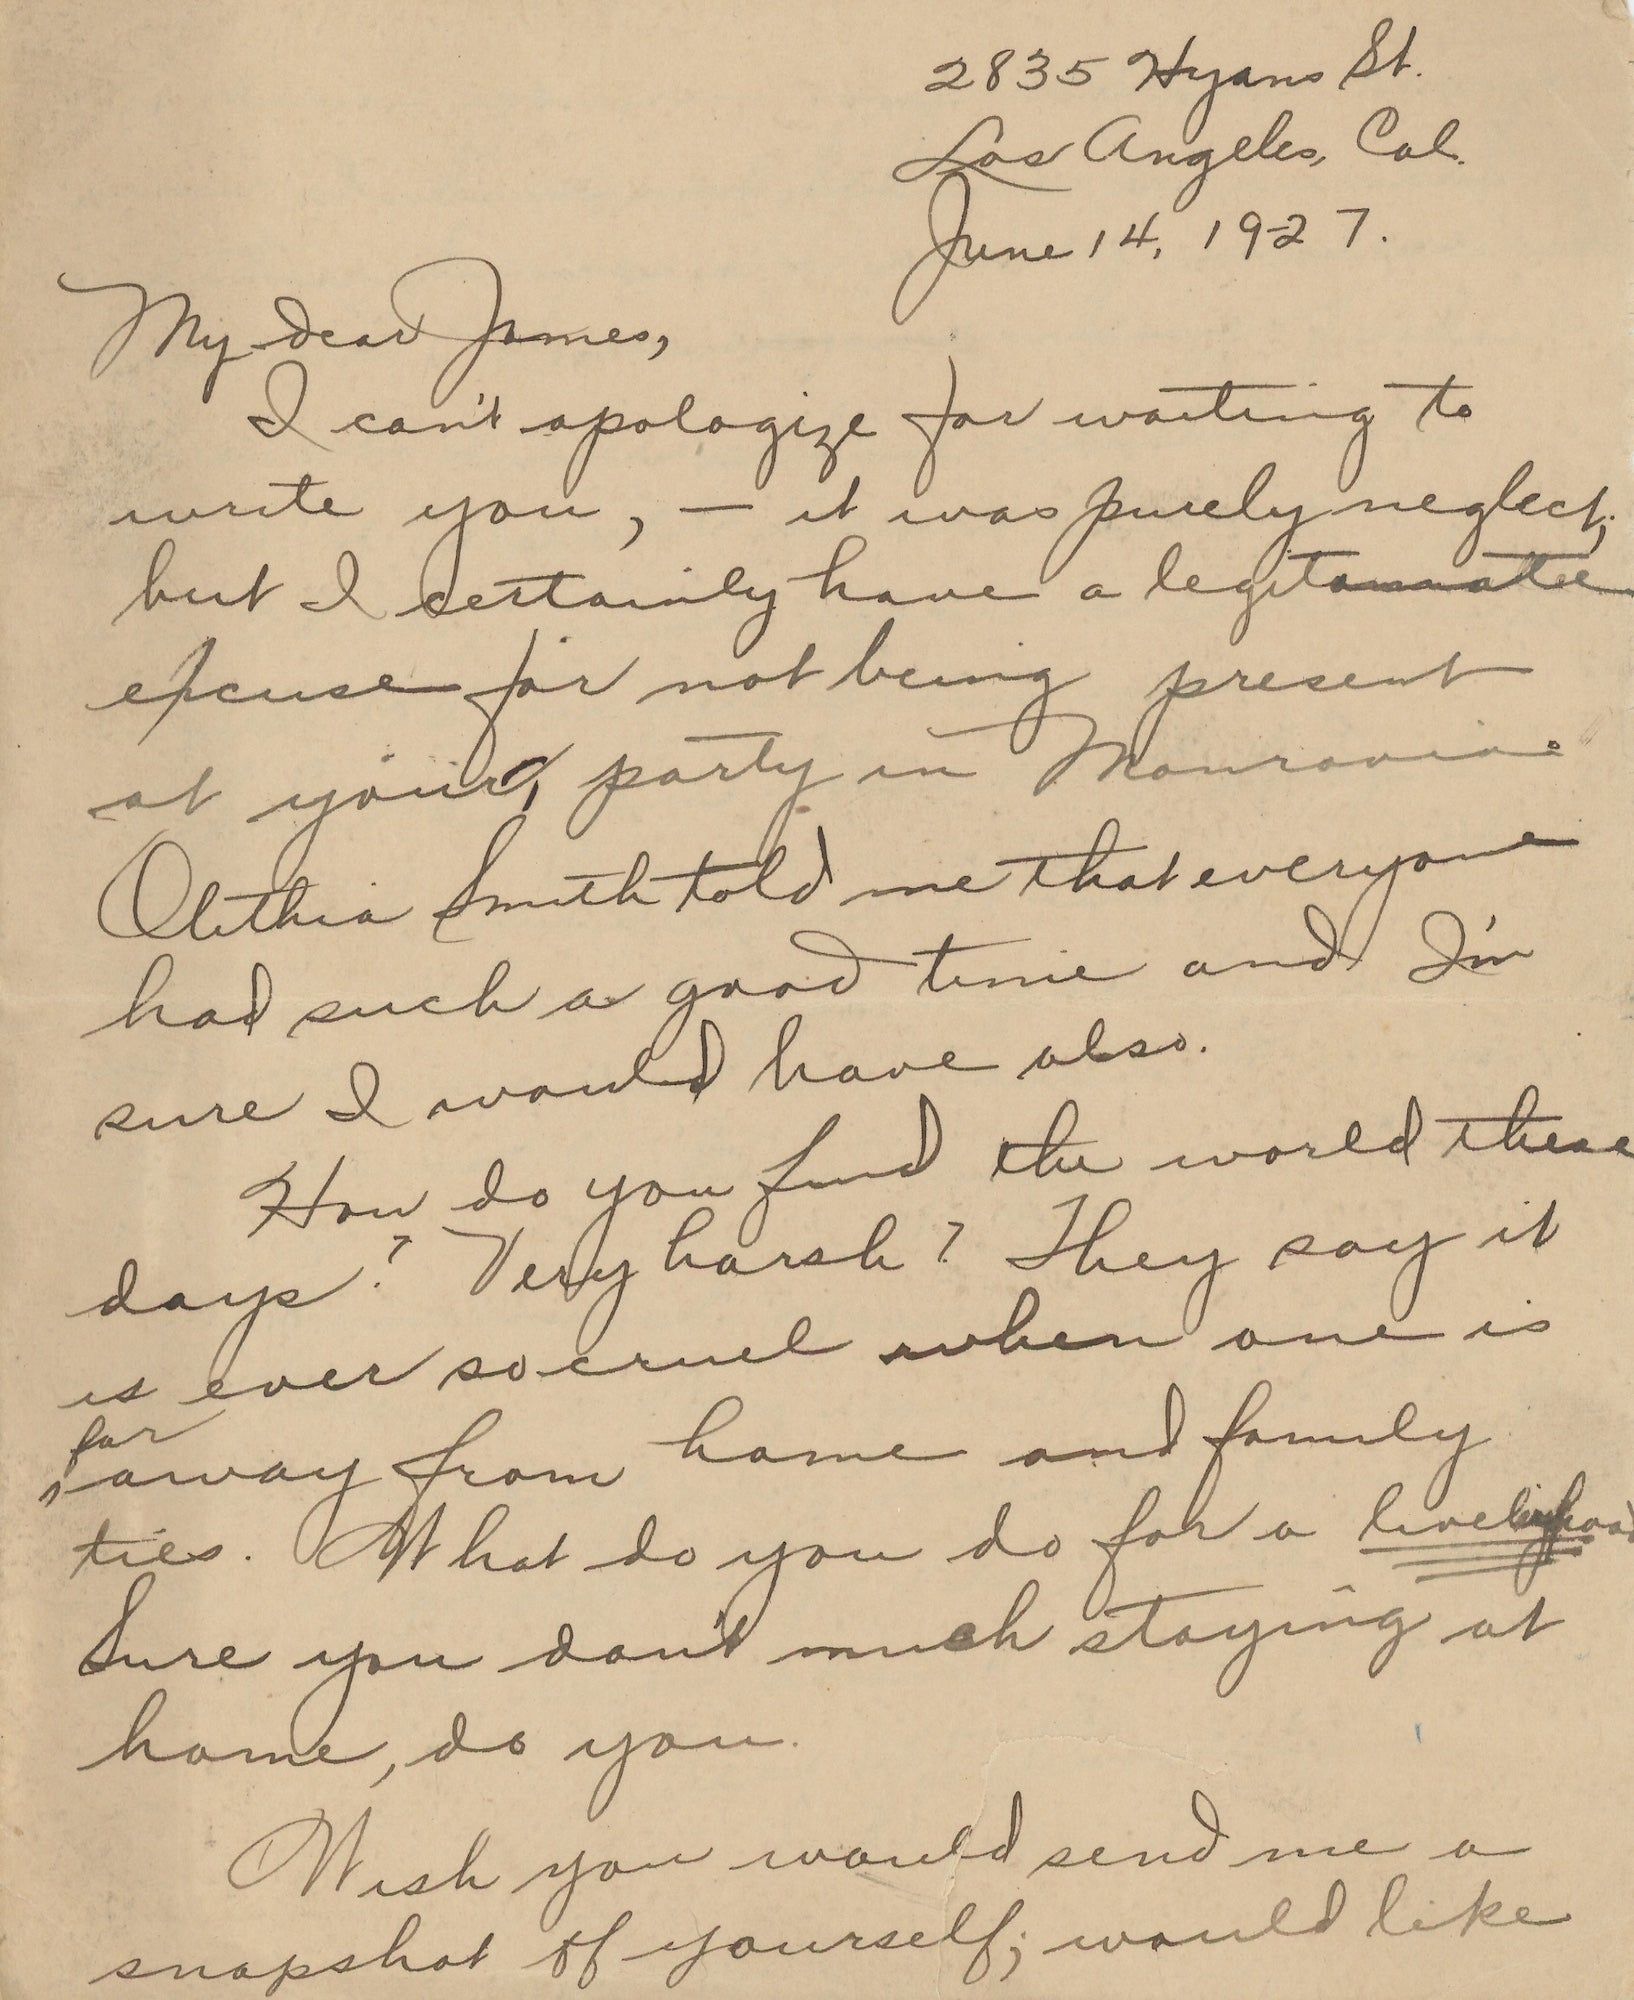 2835 Hyans St.
Los Angeles, Cal.
June 14, 1927.
My dear James,
I can't apologize for waiting to
write you, — it was purely neglect;
but I certainly have a legitamate
excuse for not being present
at your party in Monrovia.
Olithia Smith told me that everyone
had such a good time and I'm
sure I would have also.
How do you find the world these
days? Very harsh? They say it
is ever so cruel when one is
far
away from home and family
ties. What do you do for a livelihood
Sure you don't much staying at
home, do you.
Wish you would send me a
snapshot of yourself; would like